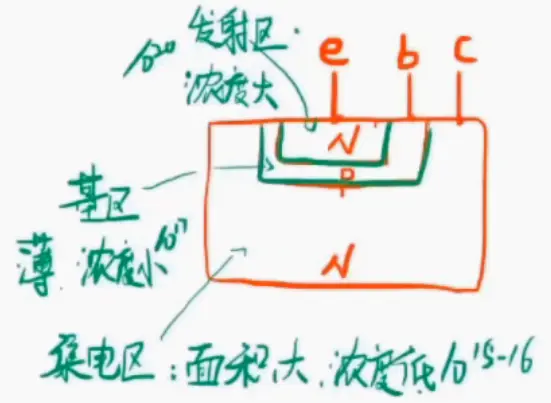 10²⁰ 发射区.
浓度大
e b c
N
P
基区
薄. 浓度小 10¹⁷
N
集电区:面积大.浓度低 10¹⁵⁻¹⁶